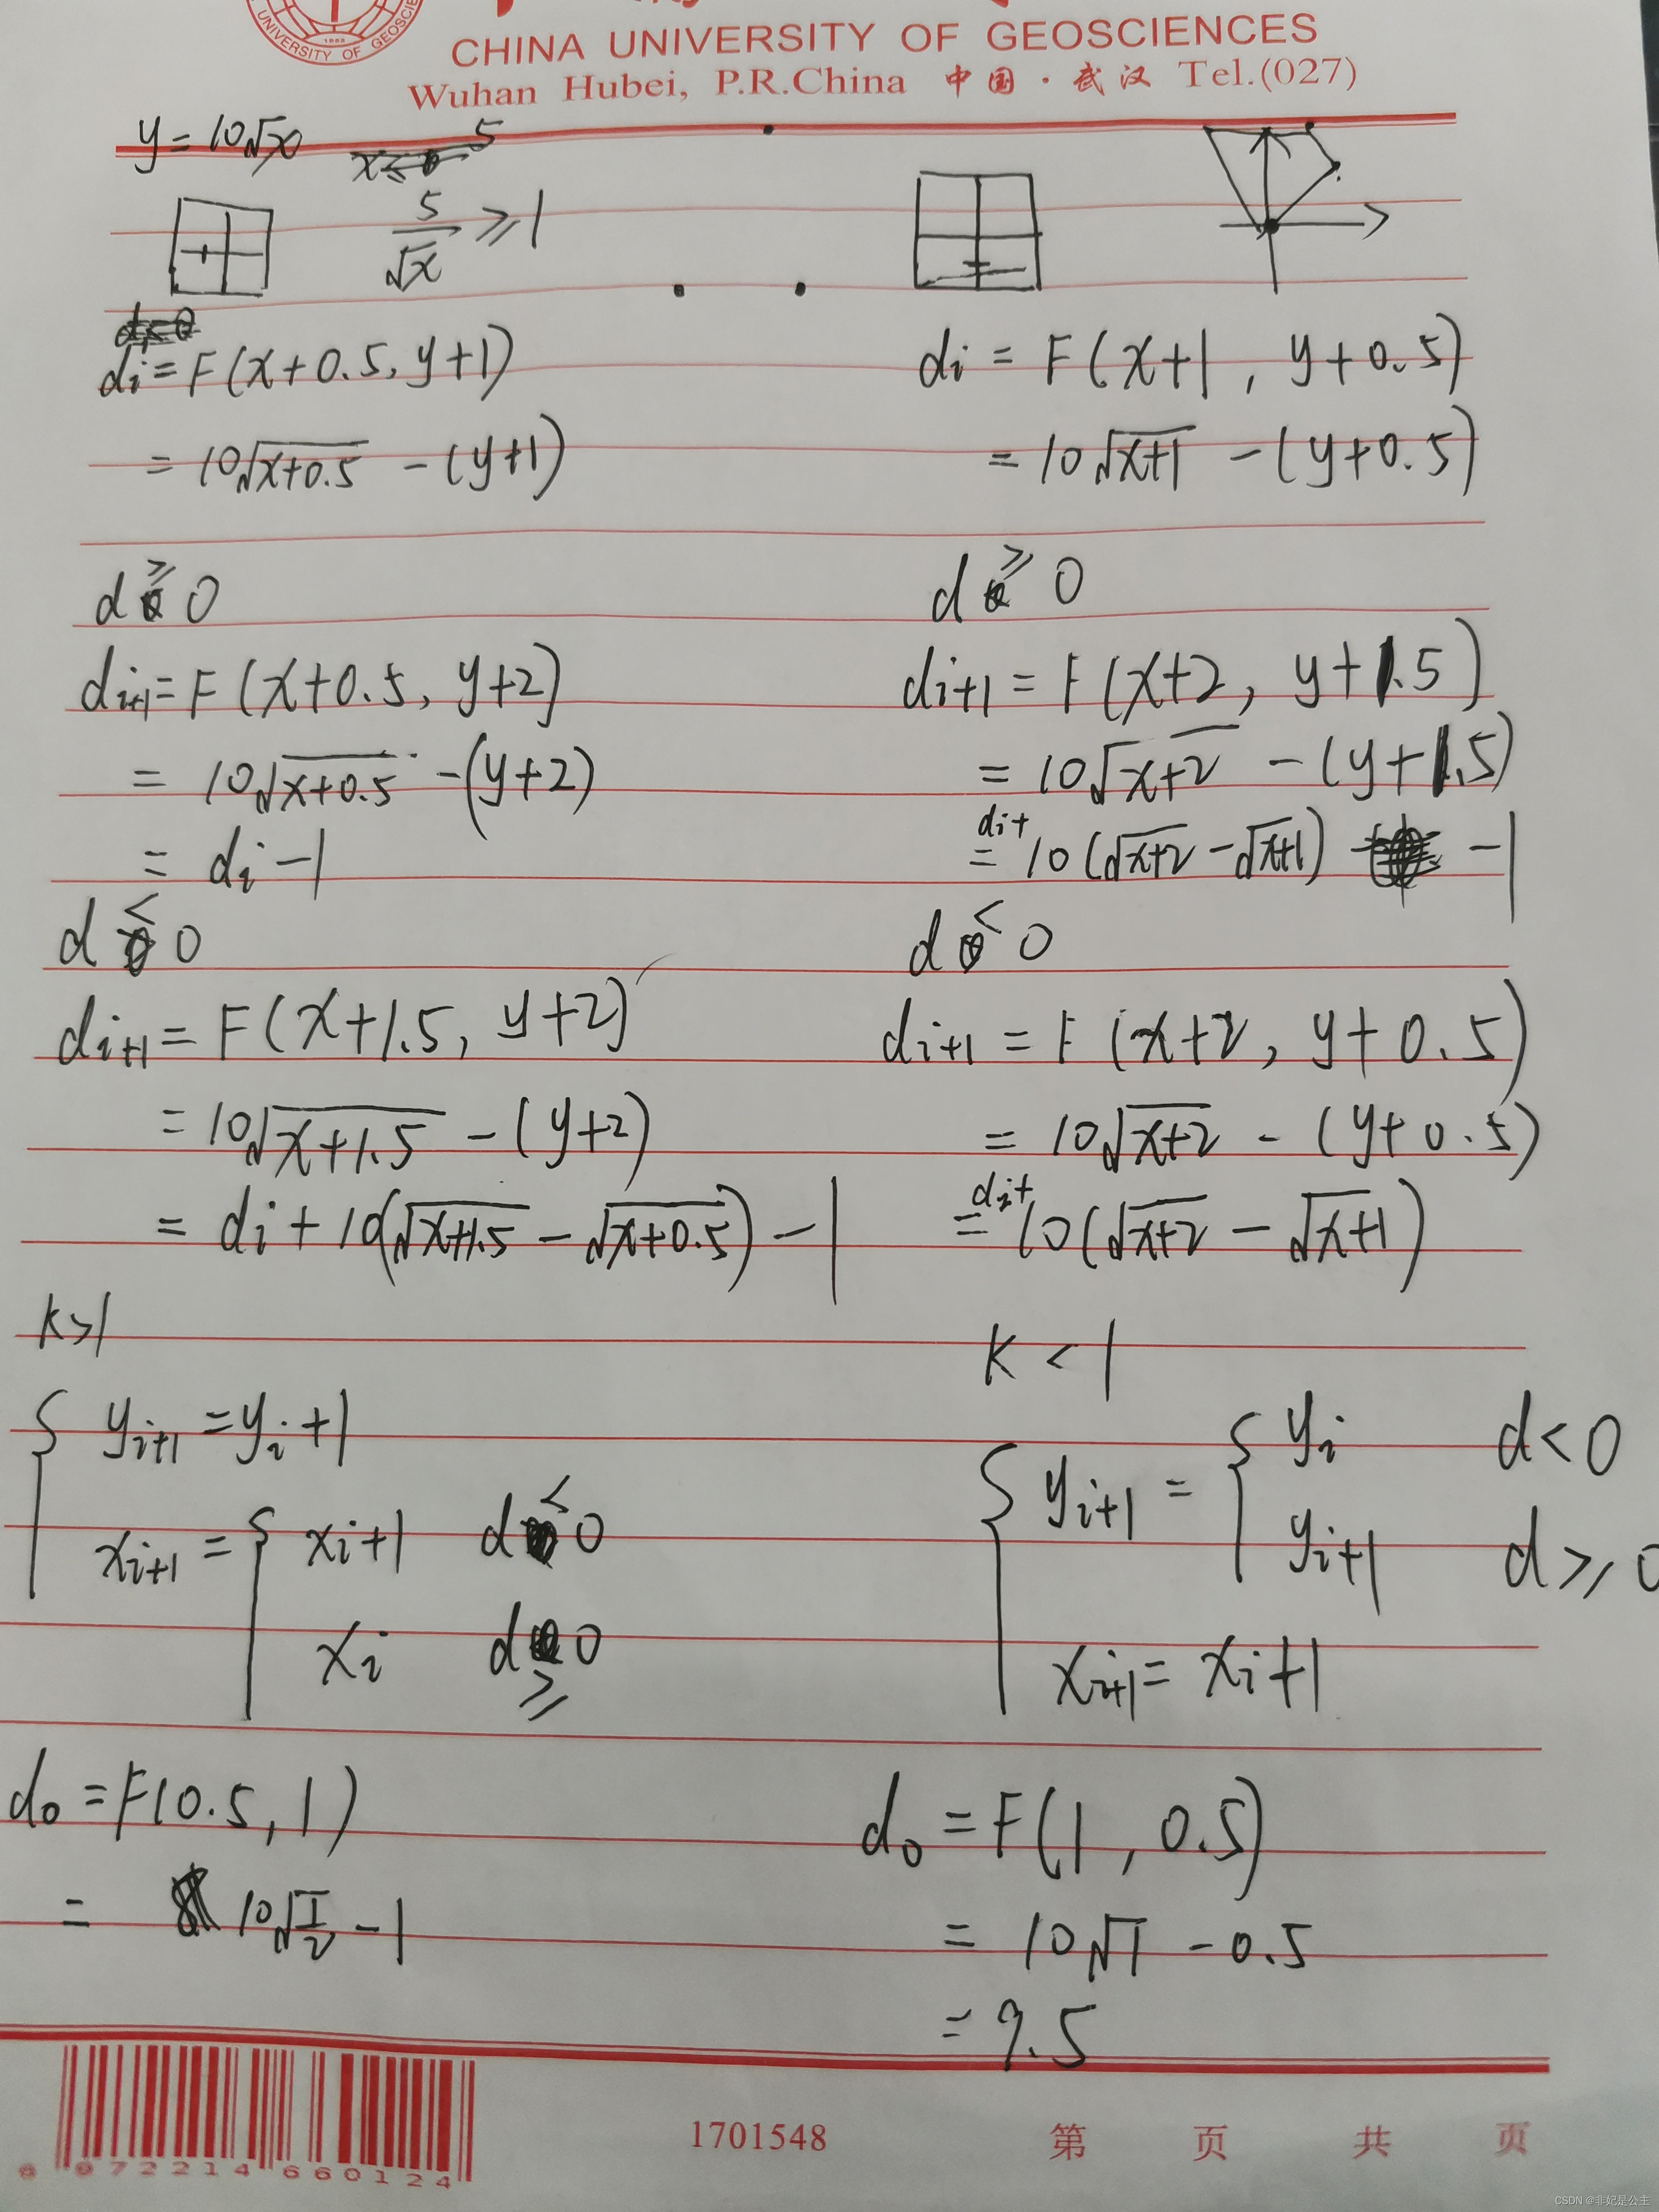 UNIVERSITY OF GEOSC
1952
CHINA UNIVERSITY OF GEOSCIENCES
Wuhan Hubei, P.R.China 中国·武汉 Tel.(027)
y=10√x
5/√x ≥1
di=F(x+0.5, y+1)
=10√(x+0.5) -(y+1)
d≥0
di+1=F(x+0.5, y+2)
=10√(x+0.5) -(y+2)
=di-1
d<0
di+1=F(x+1.5, y+2)
=10√(x+1.5) -(y+2)
=di+10(√(x+1.5) -√(x+0.5))-1
k>1
yi+1=yi+1
xi+1={ xi+1 d<0
xi d≥0
d0=F(0.5, 1)
=10√(1/2) -1
di=F(x+1, y+0.5)
=10√(x+1) -(y+0.5)
d≥0
di+1=F(x+2, y+1.5)
=10√(x+2) -(y+1.5)
=di+10(√(x+2) -√(x+1)) -1
d<0
di+1=F(x+2, y+0.5)
=10√(x+2) -(y+0.5)
=di+10(√(x+2) -√(x+1))
k<1
yi+1={ yi d<0
yi+1 d≥0
xi+1=xi+1
d0=F(1, 0.5)
=10√1 -0.5
=9.5
6 972214 660124
1701548
第 页 共 页
CSDN @非妃是公主